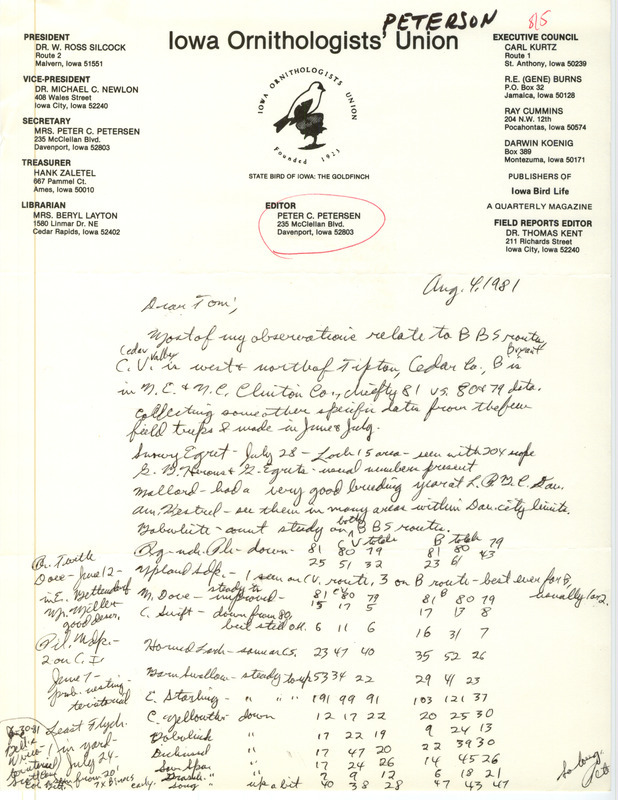 PETERSON
8/5
Iowa Ornithologists' Union
PRESIDENT
DR. W. ROSS SILCOCK
Route 2
Malvern, Iowa 51551
VICE-PRESIDENT
DR. MICHAEL C. NEWLON
408 Wales Street
Iowa City, Iowa 52240
SECRETARY
MRS. PETER C. PETERSEN
235 McClellan Blvd.
Davenport, Iowa 52803
TREASURER
HANK ZALETEL
667 Pammel Ct.
Ames, Iowa 50010
LIBRARIAN
MRS. BERYL LAYTON
1580 Linmar Dr. NE
Cedar Rapids, Iowa 52402
IOWA ORNITHOLOGISTS UNION
Founded 1923
STATE BIRD OF IOWA: THE GOLDFINCH
EDITOR
PETER C. PETERSEN
235 McClellan Blvd.
Davenport, Iowa 52803
EXECUTIVE COUNCIL
CARL KURTZ
Route 1
St. Anthony, Iowa 50239
R.E. (GENE) BURNS
P.O. Box 32
Jamaica, Iowa 50128
RAY CUMMINS
204 N.W. 12th
Pocahontas, Iowa 50574
DARWIN KOENIG
Box 389
Montezuma, Iowa 50171
PUBLISHERS OF
Iowa Bird Life
A QUARTERLY MAGAZINE
FIELD REPORTS EDITOR
DR. THOMAS KENT
211 Richards Street
Iowa City, Iowa 52240
Aug. 4, 1981
Dear Tom,
Most of my observations relate to B B S routes,
Cedar Valley Bryant
C. V. is west & north of Tipton, Cedar Co., B is
in N. E. & N. C. Clinton Co., chiefly 81 vs. 80 & 79 data.
collecting some other specific dates from the few
field trips I made in June & July.
Snowy Egret - July 28 - Lock 15 area - seen with 20X scope
G. B. Herons & G. Egrets - usual numbers present
Mallard - had a very good breeding year at L. P. & C. Dav.
Am. Kestrel - see them in many areas within Dav. city limits.
Bobwhite - count steady on both B B S routes.
CV totals B totals
Rg-nk. Ph. - down - 81 80 79 81 80 79
25 51 32 23 61 43
Upland Sdp. - 1 seen on C.V. route, 3 on B route - best ever for B, usually 1 or 2.
M. Dove - steady to improved - 81 CV 80 79 81 B 80 79
15 17 5 18 17 8
C. Swift - down from 80, best still ok. 6 11 6 16 31 7
Horned Lark - same as C.S. 23 47 40 35 52 26
Barn Swallow - steady to up 53 34 22 29 41 23
E. Starling - " " " 191 99 91 103 121 37
C. Yellowth. down 12 17 22 20 25 30
Bobolink " 17 22 19 9 24 13
Dickcissel " 17 47 20 22 39 30
Sav. Spar. " 17 24 26 14 45 26
Grassh. " " 7 9 12 6 18 21
Song " up a bit 40 38 28 47 43 47
R. Turtle
Dove - June 12 -
in E. Bettendorf
Mr. Miller
good descr.
Pil. Wdp. -
2 on C. I.
June 7 -
prob. nesting
territorial
Least Flych.
1 in yard
July 24.
6-30-81
Bell's
Vireo
territorial
from 20'
7X Binocs
early.
So long,
Pete